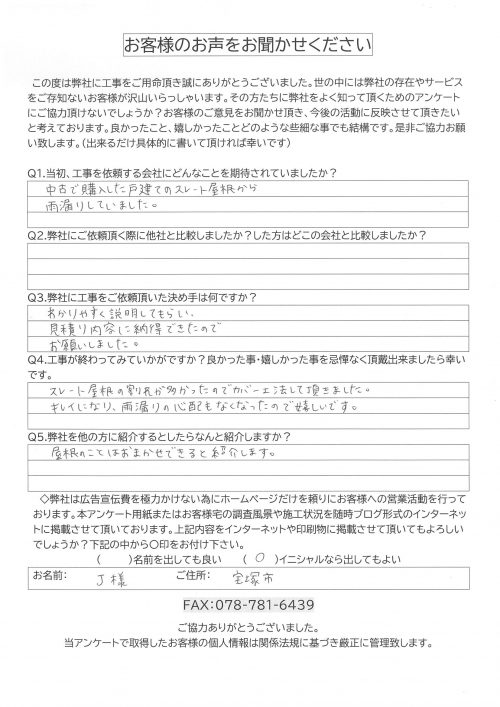 お客様のお声をお聞かせください
この度は弊社に工事をご用命頂き誠にありがとうございました。世の中には弊社の存在やサービス
をご存知ないお客様が沢山いらっしゃいます。その方たちに弊社をよく知って頂くためのアンケート
にご協力頂けないでしょうか？お客様のご意見をお聞かせ頂き、今後の活動に反映させて頂きたい
と考えております。良かったこと、嬉しかったことどのような些細な事でも結構です。是非ご協力お願
い致します。（出来るだけ具体的に書いて頂ければ幸いです）
Q1.当初、工事を依頼する会社にどんなことを期待されていましたか？
中古で購入した戸建てのスレート屋根から
雨漏りしていました。
Q2.弊社にご依頼頂く際に他社と比較しましたか？した方はどこの会社と比較しましたか？
Q3.弊社に工事をご依頼頂いた決め手は何ですか？
わかりやすく説明してもらい、
見積り内容に納得できたので
お願いしました。
Q4.工事が終わってみていかがですか？良かった事・嬉しかった事を忌憚なく頂戴出来ましたら幸い
です。
スレート屋根の割れが多かったのでカバー工法して頂きました。
キレイになり、雨漏りの心配もなくなったので嬉しいです。
Q5.弊社を他の方に紹介するとしたらなんと紹介しますか？
屋根のことはおまかせできると紹介します。
◇弊社は広告宣伝費を極力かけない為にホームページだけを頼りにお客様への営業活動を行って
おります。本アンケート用紙またはお客様宅の調査風景や施工状況を随時ブログ形式のインターネッ
トに掲載させて頂いております。上記内容をインターネットや印刷物に掲載させて頂いてもよろしい
でしょうか？下記の中から〇印をお付け下さい。
（　　）名前を出しても良い　（ ○ ）イニシャルなら出してもよい
お名前： J様 ご住所： 宝塚市
FAX：078-781-6439
ご協力ありがとうございました。
当アンケートで取得したお客様の個人情報は関係法規に基づき厳正に管理致します。